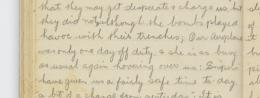 that they may get desperate & charge us but
they did not although the bombs played
havoc with their trenches; Our aeroplane
was only one day off duty, & she is as busy
as usual again hovering over us; Enquire
have given us a fairly safe time to day
a bit of a change from yesterday; It is